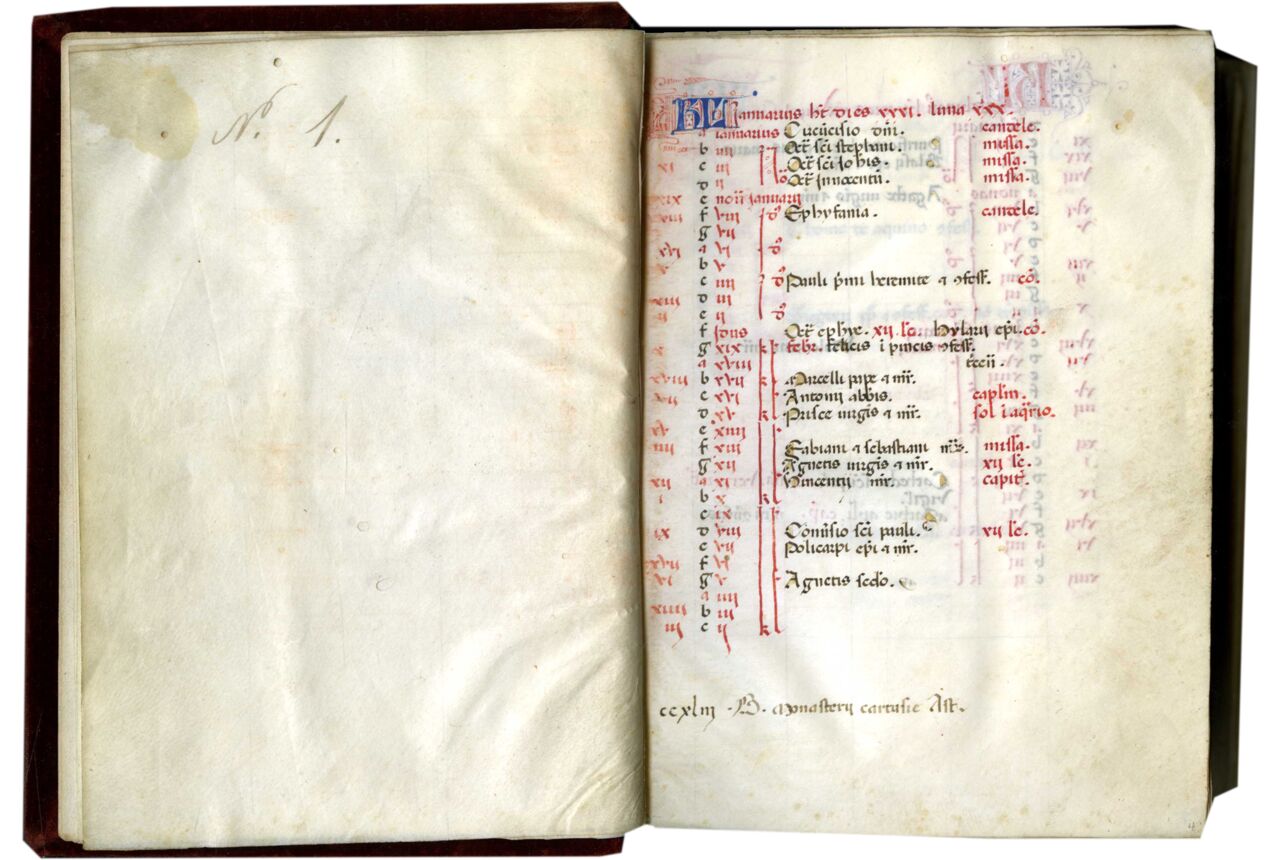 Nº. 1.
KL Januarius ht dies xxxi. luna xxx.
a ianuarius Circūcisio dnī. candele.
b iiii Oct sci stephani. missa.
xi c iii Oct sci Johis. missa.
d ii Oct Innocentū. missa.
xix e nonis Januarii
viii f viii Ephyfania. candele.
g vii
xvi a vi
v b v
c iiii Pauli pmi heremite ⁊ ꝯfess. cō.
xiii d iii
ii e ii
f Idus Oct ephye. xii lc. Hylarii epi. cō.
x g xix febr. felicis i pincis ꝯfess.
a xviii
xviii b xvii Marcelli pape ⁊ mr.
vii c xvi Antonii abbis. caplm.
d xv Prisce uirgis ⁊ mr.
xv e xiiii
iiii f xiii Fabiani ⁊ sebastiani missa.
g xii Agnetis uirgis ⁊ mr. xii lc.
xii a xi Vincentii mr. capit.
i b x
c ix
ix d viii Conuersio sci pauli. xii lc.
e vii Policarpi epi ⁊ mr.
xvii f vi
vi g v Agnetis secdo.
a iiii
xiiii b iii
iii c ii
ccxliii · monasterii cartusie Ast.